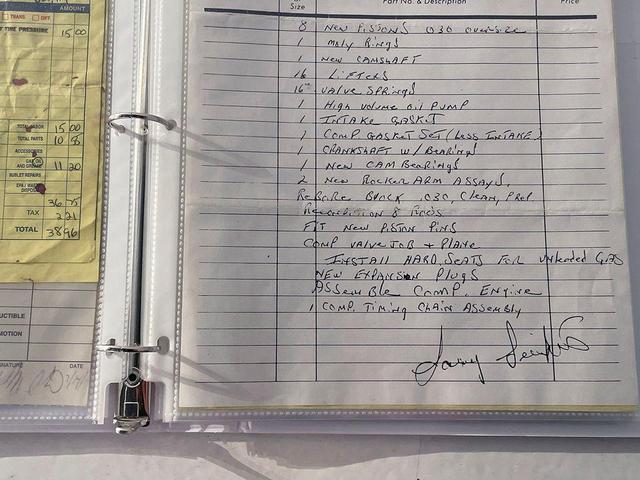 AMOUNT
TRANS OFF
TIRE PRESSURE 15 00
TOTAL LABOR 15 00
TOTAL PARTS 10 8
ACCESSORIES
GAS, OIL AND GREASE 11 20
SUBLET REPAIRS
EPA / WASTE DISPOSAL
36 75
TAX 2 21
TOTAL 38 96
UCTIBLE
MOTION
SIGNATURE DATE
Size Part No. & Description Price
8 NEW PISTONS .030 OVERSIZE
1 MOLY RINGS
1 NEW CAMSHAFT
16 LIFTERS
16 VALVE SPRINGS
1 HIGH VOLUME OIL PUMP
1 INTAKE GASKET
1 COMP GASKET SET (LESS INTAKE)
1 CRANKSHAFT W/ BEARINGS
1 NEW CAM BEARINGS
2 NEW ROCKER ARM ASSAYS.
REBORE BLOCK .030, CLEAN, PREP
RECONDITION 8 RODS
FIT NEW PISTON PINS
COMP VALVE JOB + PLANE
INSTALL HARD SEATS FOR UNLEADED GAS
NEW EXPANSION PLUGS
ASSEMBLE COMP. ENGINE
1 COMP. TIMING CHAIN ASSEMBLY